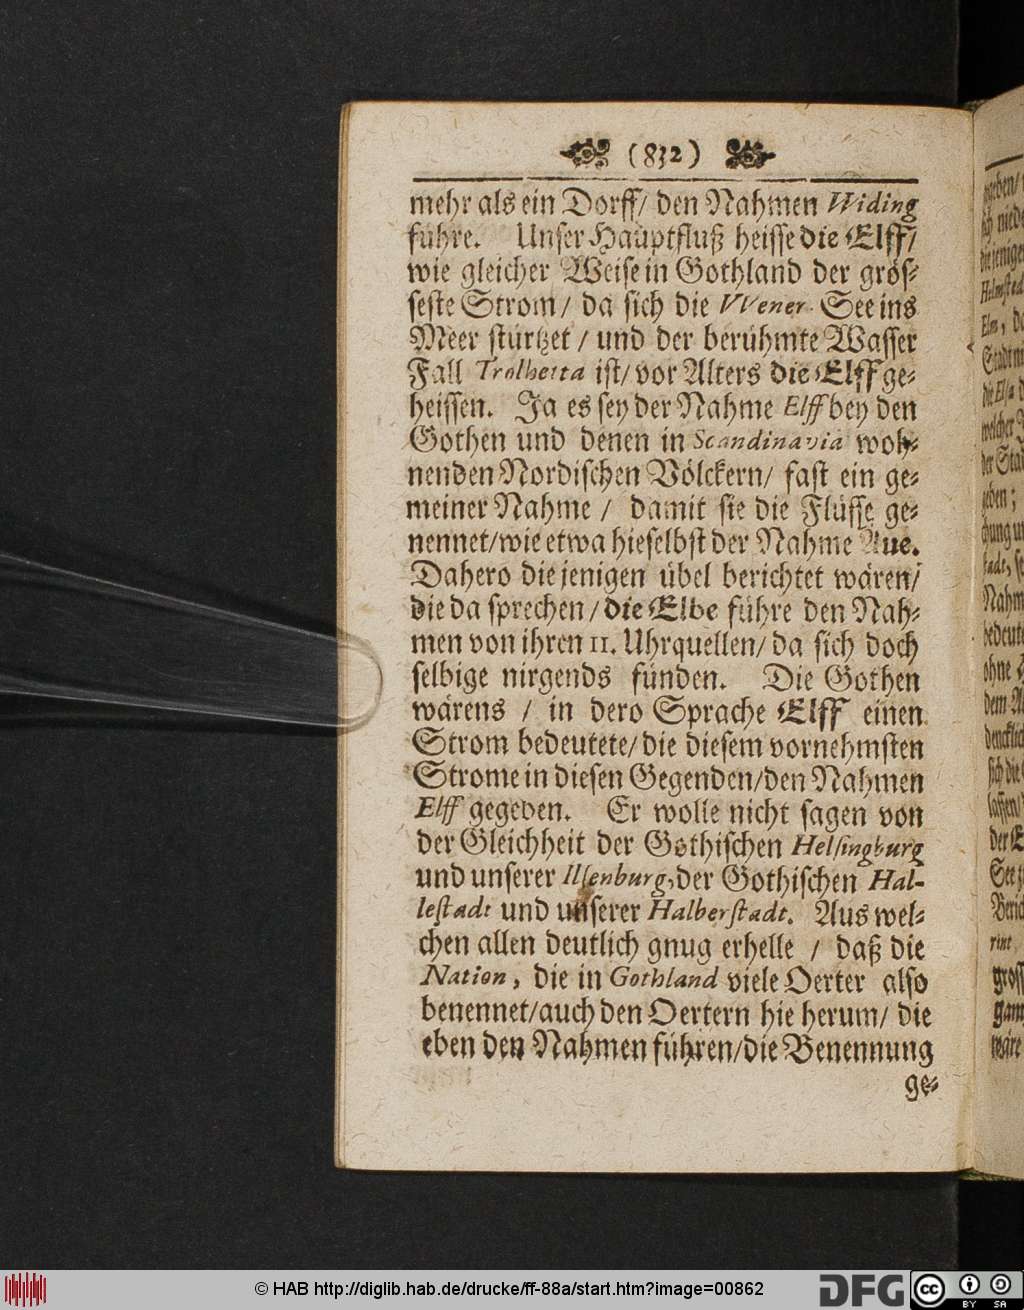 (832)
mehr als ein Dorff/ den Nahmen Widing
führe. Unser Hauptfluß heisse die Elff/
wie gleicher Weise in Gothland der grös-
seste Strom/ da sich die VVener See ins
Meer stürtzet/ und der berühmte Wasser
Fall Trolhetta ist/ vor Alters die Elff ge-
heissen. Ja es sey der Nahme Elff bey den
Gothen und denen in Scandinavia woh-
nenden Nordischen Völckern/ fast ein ge-
meiner Nahme / damit sie die Flüsse ge-
nennet/ wie etwa hieselbst der Nahme Aue.
Dahero diejenigen übel berichtet wären/
die da sprechen/ die Elbe führe den Nah-
men von ihren 11. Uhrquellen/ da sich doch
selbige nirgends fünden. Die Gothen
wärens / in dero Sprache Elff einen
Strom bedeutete/ die diesem vornehmsten
Strome in diesen Gegenden/ den Nahmen
Elff gegeben. Er wolle nicht sagen von
der Gleichheit der Gothischen Helsingburg
und unserer Ilsenburg, der Gothischen Hal-
lestadt und unserer Halberstadt. Aus wel-
chen allen deutlich gnug erhelle / daß die
Nation, die in Gothland viele Oerter also
benennet/ auch den Oertern hie herum/ die
eben den Nahmen führen/ die Benennung
ge-
© HAB http://diglib.hab.de/drucke/ff-88a/start.htm?image=00862
DFG
cc
BY SA